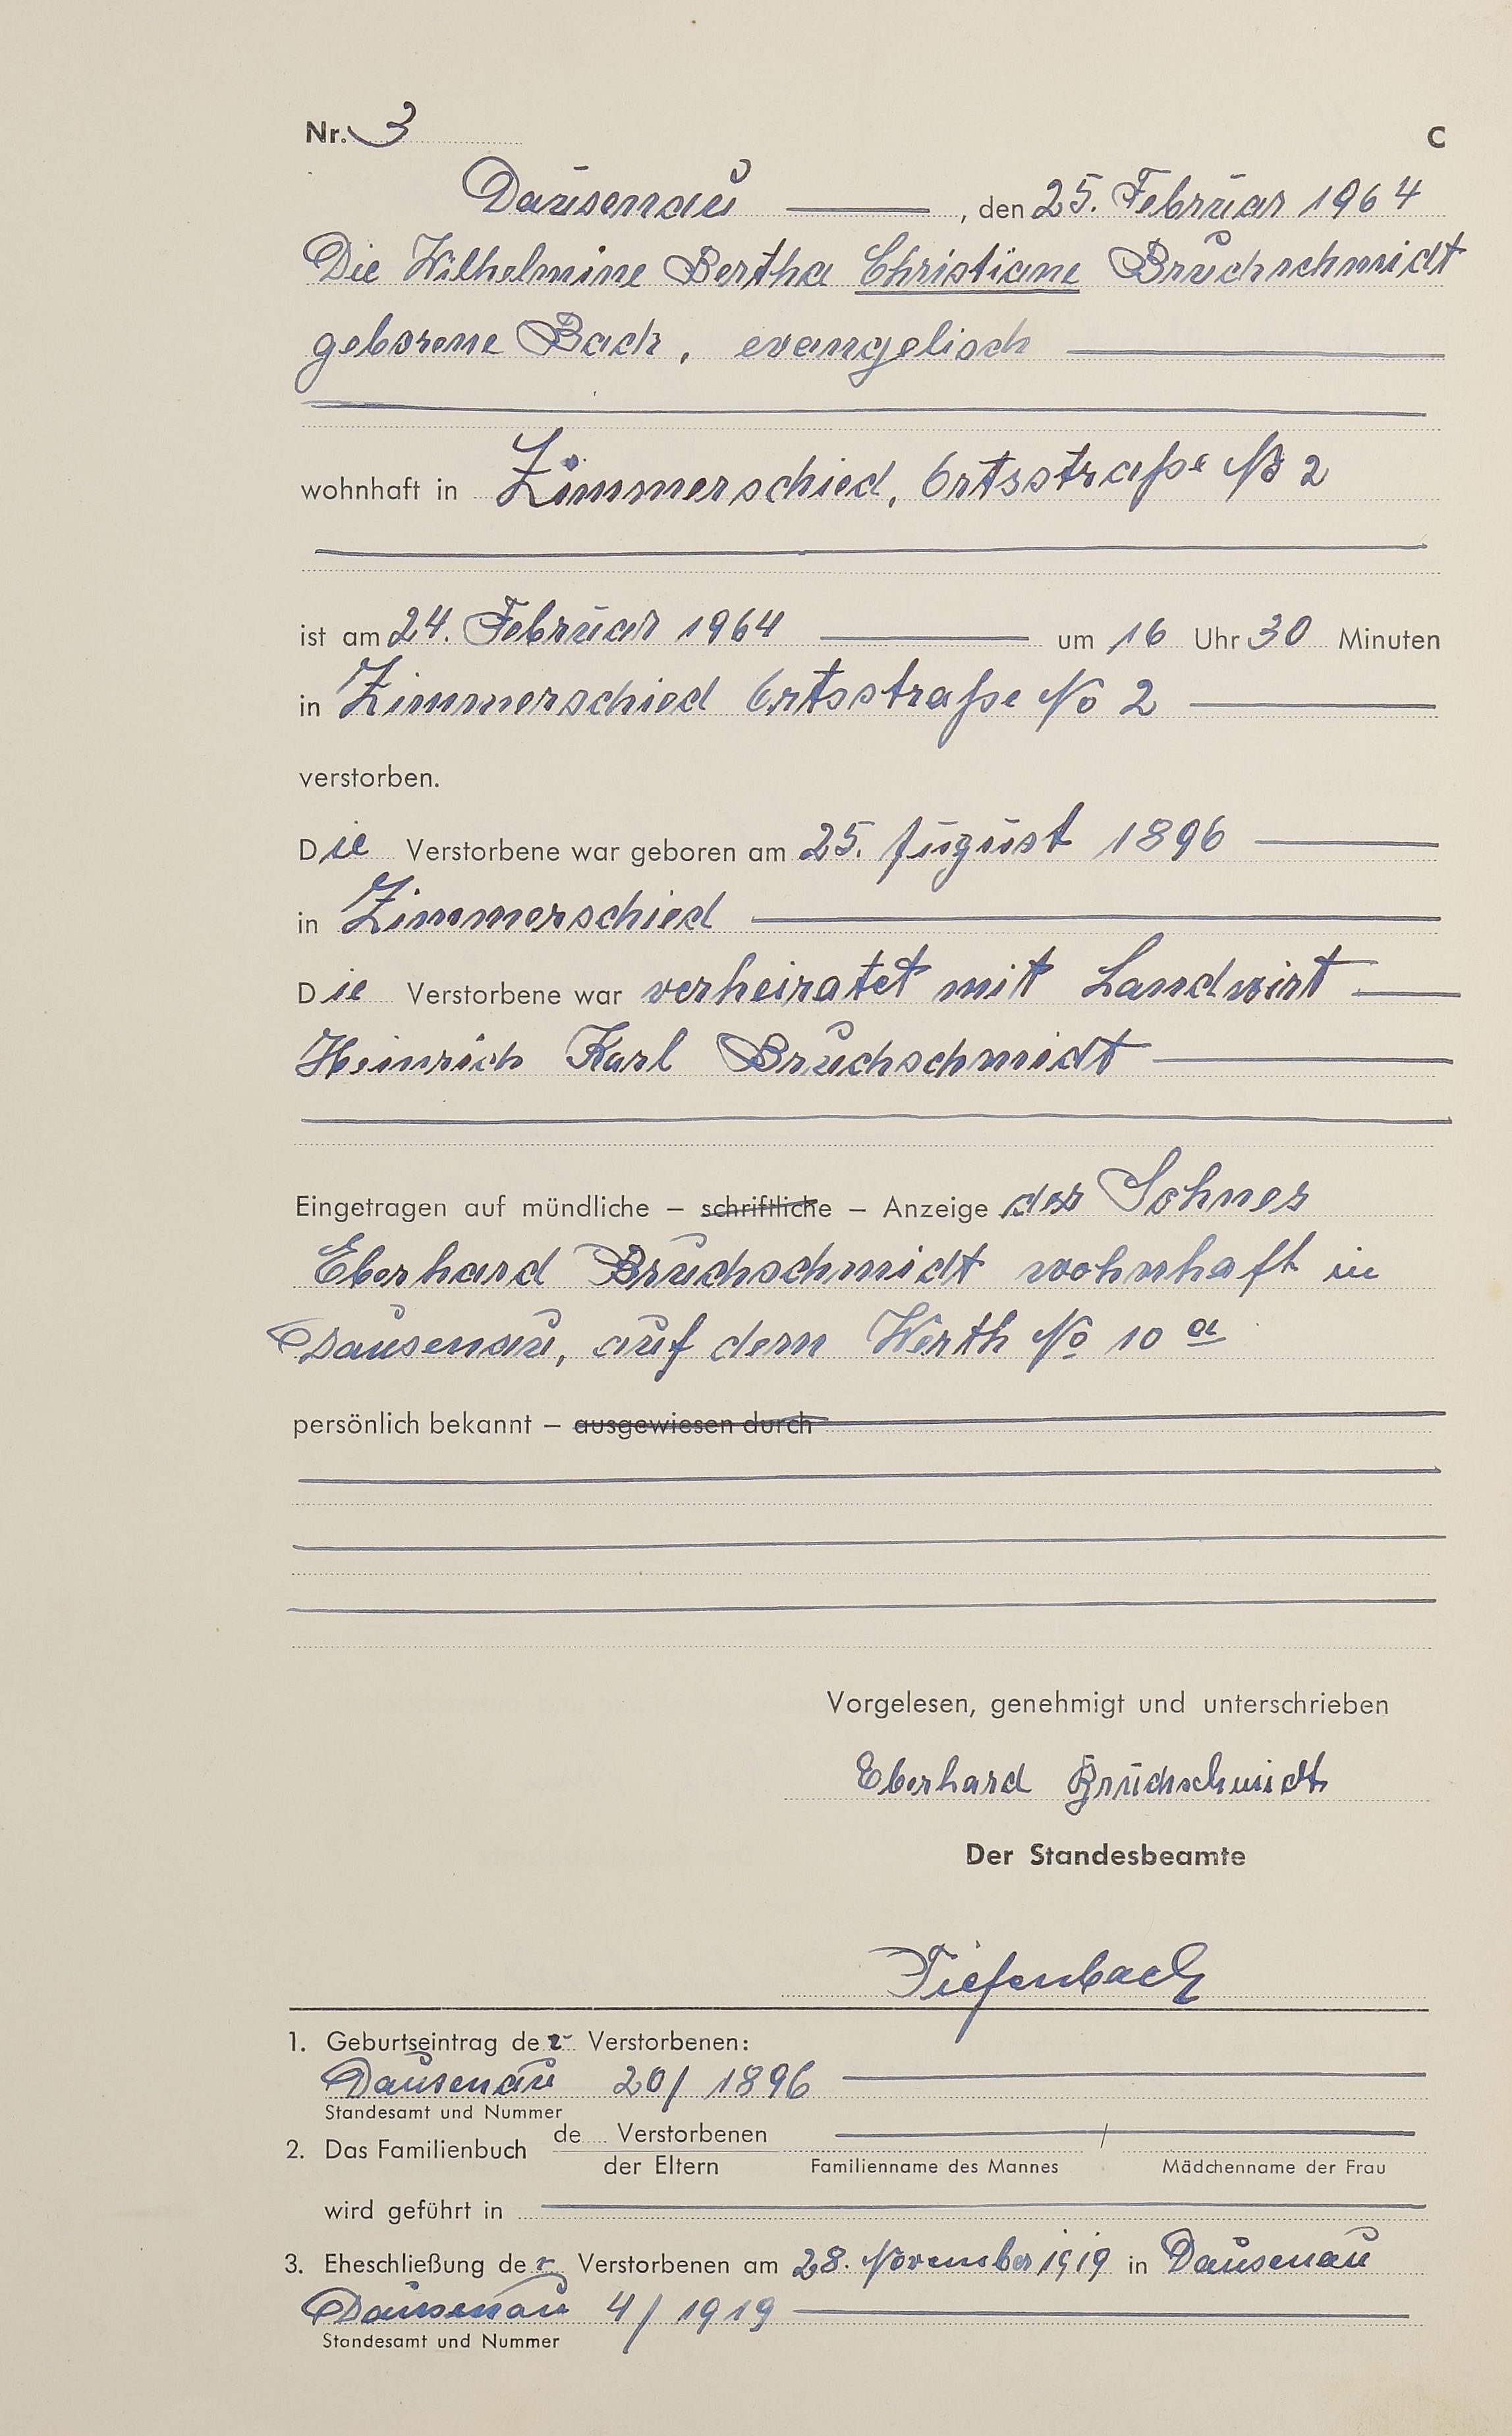 Nr. 3 C
Dausenau , den 25. Februar 1964
Die Wilhelmine Bertha Christiane Bruchschmidt
geborene Bach, evangelisch
wohnhaft in Zimmerschied, Ortsstraße No 2
ist am 24. Februar 1964 um 16 Uhr 30 Minuten
in Zimmerschied Ortsstraße No 2
verstorben.
Die Verstorbene war geboren am 25. August 1896
in Zimmerschied
Die Verstorbene war verheiratet mit Landwirt
Heinrich Karl Bruchschmidt
Eingetragen auf mündliche – schriftliche – Anzeige des Sohnes
Eberhard Bruchschmidt wohnhaft in
Dausenau, auf dem Werth No 10 a
persönlich bekannt – ausgewiesen durch
Vorgelesen, genehmigt und unterschrieben
Eberhard Bruchschmidt
Der Standesbeamte
Tiefenbach
1. Geburtseintrag der Verstorbenen:
Dausenau 20/ 1896
Standesamt und Nummer
de Verstorbenen
2. Das Familienbuch
der Eltern Familienname des Mannes / Mädchenname der Frau
wird geführt in
3. Eheschließung der Verstorbenen am 28. November 1919 in Dausenau
Dausenau 4/ 1919
Standesamt und Nummer